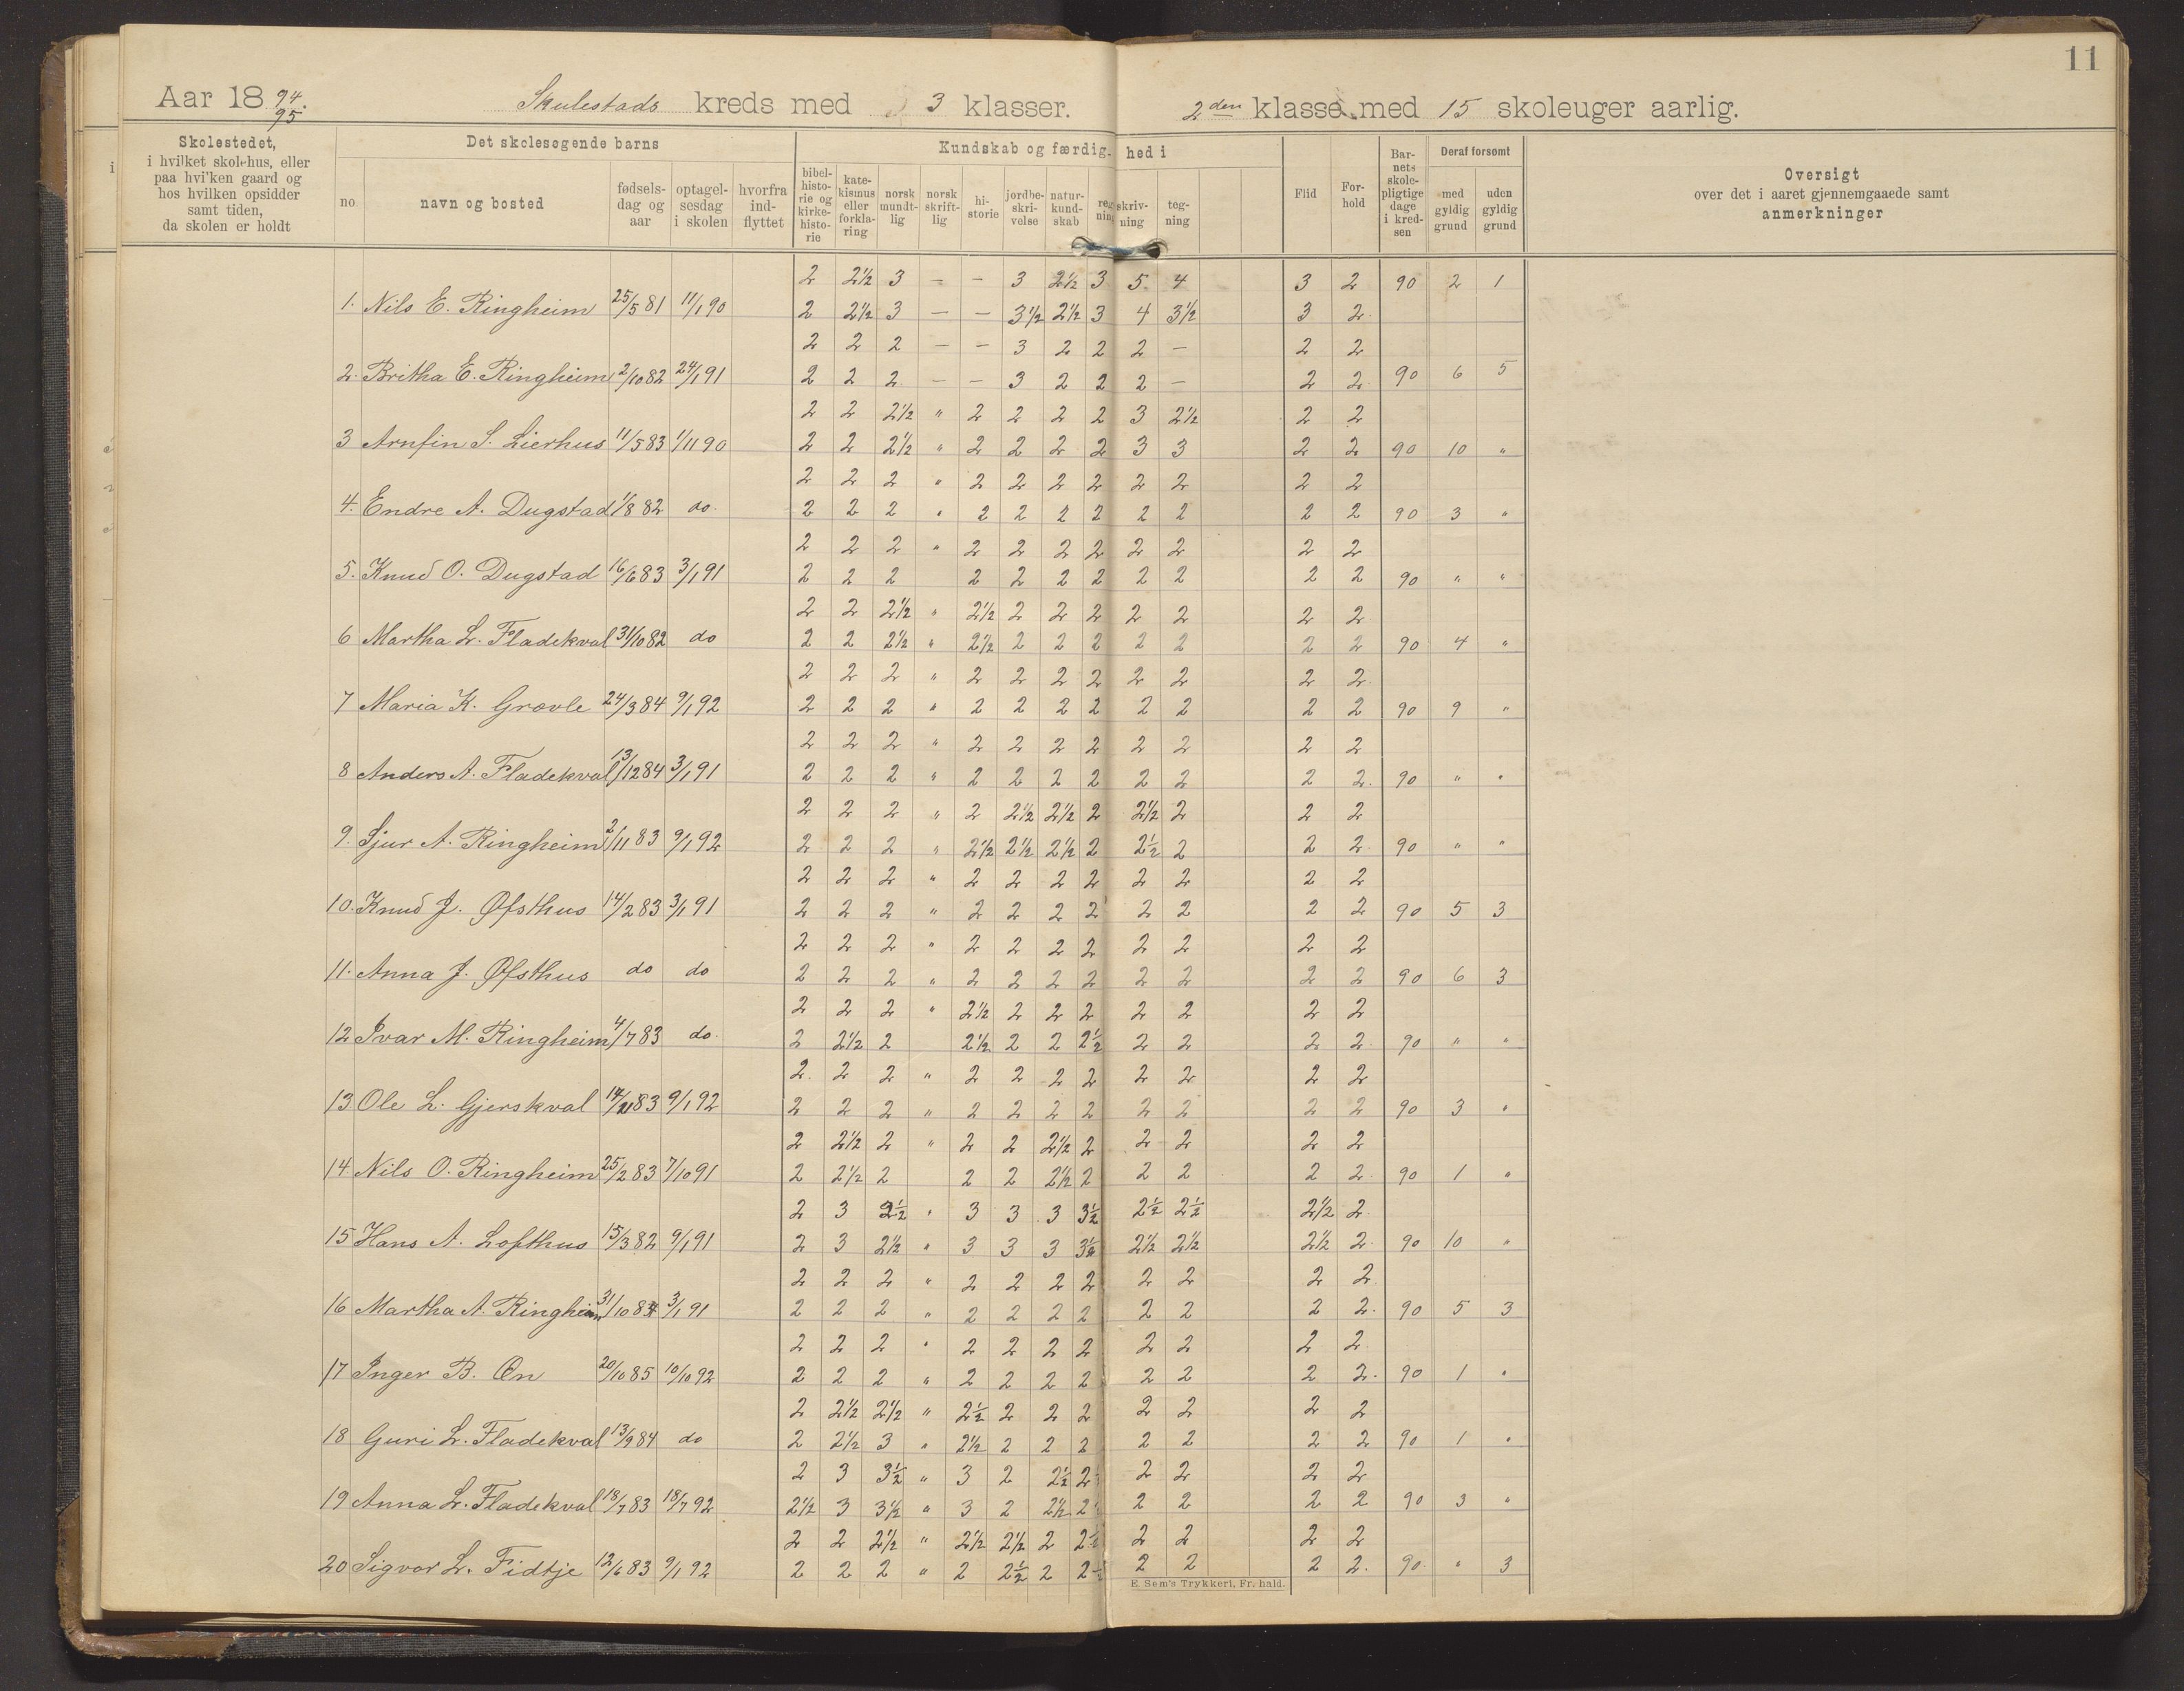 11
Aar 18 94/95. Skulestads kreds med 3 klasser. 2den klasse med 15 skoleuger aarlig.
Skolestedet, i hvilket skolehus, eller paa hvilken gaard og hos hvilken opsidder samt tiden, da skolen er holdt
Det skolesøgende barns
no
navn og bosted
fødsels-dag og aar
optagel-sesdag i skolen
hvorfra ind-flyttet
Kundskab og færdig-hed i
bibel-histo-rie og kirke-histo-rie
kate-kismus eller forkla-ring
norsk mundt-lig
norsk skrift-lig
hi-storie
jordbe-skri-velse
natur-kund-skab
reg-ning
skriv-ning
teg-ning
Flid
For-hold
Bar-nets skole-pligtige dage i kred-sen
Deraf forsømt
med gyldig grund
uden gyldig grund
Oversigt over det i aaret gjennemgaaede samt anmerkninger
2 2½ 3 — — 3 2½ 3 5 4 3 2 90 2 1
1. Nils E. Ringheim 25/5 81 11/1 90 2 2½ 3 — — 3½ 2½ 3 4 3½ 3 2
2 2 2 — — 3 2 2 2 — 2 2
2. Britha E. Ringheim 2/10 82 24/1 91 2 2 2 — — 3 2 2 2 — 2 2 90 6 5
2 2 2½ " 2 2 2 2 3 2½ 2 2
3 Arnfin S. Lierhus 11/5 83 1/11 90 2 2 2½ " 2 2 2 2 3 3 2 2 90 10 "
2 2 2 " 2 2 2 2 2 2 2 2
4. Endre A. Dugstad 1/8 82 do. 2 2 2 " 2 2 2 2 2 2 2 2 90 3 "
2 2 2 " 2 2 2 2 2 2 2 2
5. Knud O. Dugstad 16/6 83 3/1 91 2 2 2 2 2 2 2 2 2 2 2 90 " "
2 2 2½ " 2½ 2 2 2 2 2 2 2
6 Martha L. Fladekval 31/10 82 do 2 2 2½ " 2½ 2 2 2 2 2 2 2 90 4 "
2 2 2 " 2 2 2 2 2 2 2 2
7 Maria K. Grovle 24/3 84 9/1 92 2 2 2 " 2 2 2 2 2 2 2 2 90 9 "
2 2 2 " 2 2 2 2 2 2 2 2
8 Anders A. Fladekval 13/12 84 3/1 91 2 2 2 " 2 2 2 2 2 2 2 2. 90 " "
2 2 2 " 2 2½ 2½ 2 2½ 2 2 2
9. Sjur A. Ringheim 2/11 83 9/1 92 2 2 2 " 2½ 2½ 2½ 2 2½ 2 2 2 90 " "
2 2 2 " 2 2 2 2 2 2 2 2
10. Knud J. Øfsthus 14/2 83 3/1 91 2 2 2 " 2 2 2 2 2 2 2 2 90 5 3
2 2 2 " 2 2 2 2 2 2 2 2
11. Anna J. Øfsthus do do 2 2 2 " 2 2 2 2 2 2 2 2 90 6 3
2 2 2 " 2½ 2 2 2 2 2 2 2
12 Ivar M. Ringheim 4/7 83 do. 2 2½ 2 2½ 2 2 2½ 2 2 2 2 90 " "
2. 2 2 " 2 2 2 2 2 2 2 2
13 Ole L. Gjerskval 83 9/1 92 2 2 2 " 2 2 2 2 2 2 2 2 90 3 "
2 2½ 2 " 2 2 2½ 2 2 2 2 2
14. Nils O. Ringheim 25/2 83 7/10 91 2 2½ 2 2 2 2½ 2 2 2 2 2 90 1 "
2 3 2½ " 3 3 3 3½ 2½ 2½ 2½ 2
15 Hans A. Lofthus 15/3 82 9/1 91 2 3 2½ " 3 3 3 3½ 2½ 2½ 2½ 2 90 10 "
2 2 2 " 2 2 2 2 2 2 2 2
16 Martha A. Ringheim 31/10 84 3/1 91 2 2 2 " 2 2 2 2 2 2 2 2. 90 5 3
2 2 2 " 2 2 2 2 2 2 2 2
17 Inger B. Øn 20/10 85 10/10 92 2 2 2 " 2 2 2 2 2 2 2 2. 90 1 "
2 2½ 2½ " 2½ 2 2 2 2 2 2 2
18 Guri L. Fladekval 13/9 84 do 2 2½ 3 " 2½ 2 2 2 2 2 2 2 90 1 "
2 3 3½ " 3 2 2½ 2½ 2 2 2 2
19 Anna L. Fladekval 18/7 83 18/7 92 2½ 3 3½ " 3 2 2½ 2½ 2 2 2 2 90 3 "
2 2 2½ " 2½ 2½ 2 2½ 2 2 2 2
20 Sigvor L. Fidtje 12/6 83 9/1 92 2 2 2 " 2 2½ 2 2½ 2 2 2 2. 90. " 3
E. Sem's Trykkeri. Fr. hald.